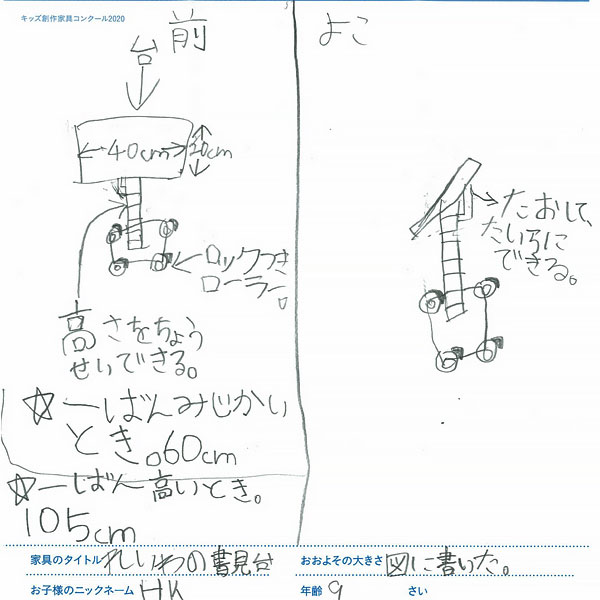 キッズ創作家具コンクール2020
前
台
40cm
20cm
ロックつき
ローラー
高さをちょう
せいできる。
☆一ばんみじかい
とき。60cm
☆一ばん高いとき。
105cm
よこ
たおして、
たいらに
できる。
家具のタイトル れいわの書見台
おおよその大きさ 図に書いた。
お子様のニックネーム HK
年齢 9 さい